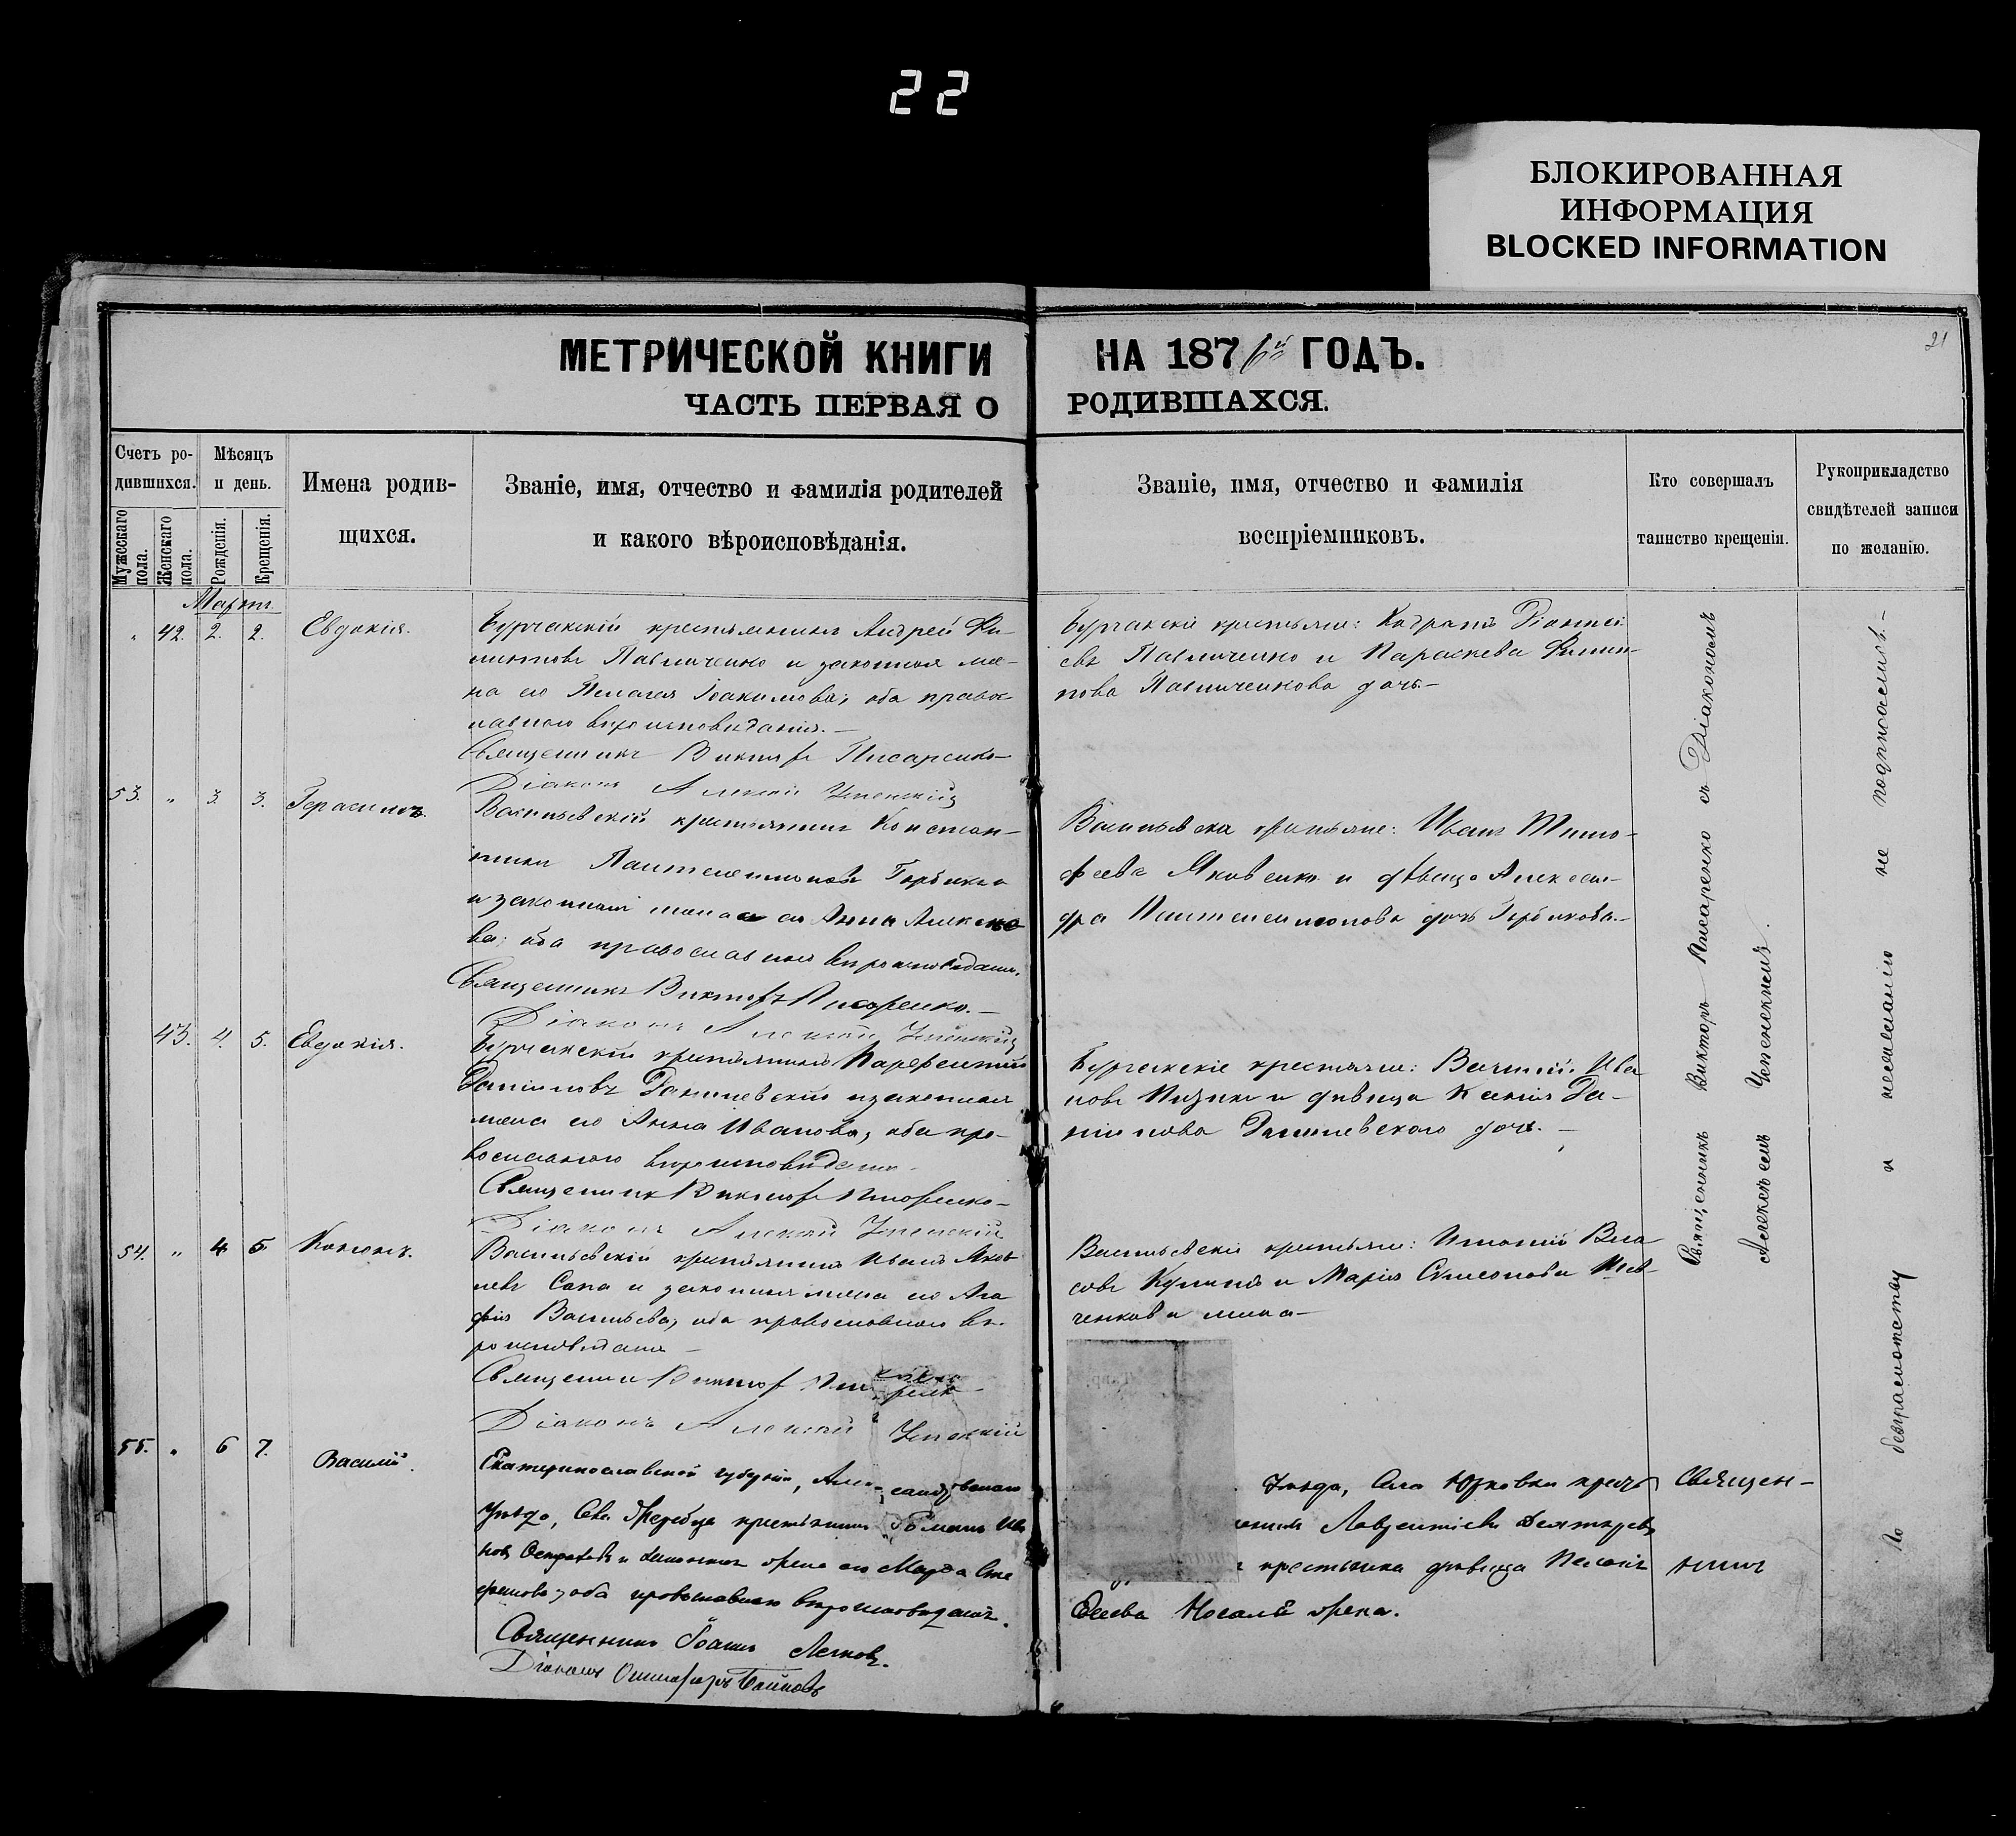 22
БЛОКИРОВАННАЯ
ИНФОРМАЦИЯ
BLOCKED INFORMATION
21
МЕТРИЧЕСКОЙ КНИГИ НА 1876й ГОДЪ.
ЧАСТЬ ПЕРВАЯ О РОДИВШАХСЯ.
Счетъ ро-
дившихся.
Мужескаго пола.
Женскаго пола.
Мѣсяцъ
и день.
Рожденія.
Крещенія.
Имена родив-
щихся.
Званіе, имя, отчество и фамилія родителей
и какого вѣроисповѣданія.
Званіе, имя, отчество и фамилія
воспріемниковъ.
Кто совершалъ
таинство крещенія.
Рукоприкладство
свидѣтелей записи
по желанію.
Мартъ
" 42. 2. 2. Евдокія.
Бурчакскій крестьянинъ Андрей Фи-
липповъ Павличенко и законная же-
на его Пелагея Іоакимова; оба право
славнаго вѣроисповѣданія. —
Священникъ Викторъ Писаренко
Діаконъ Алексій Успенскій
Бурчакскіе крестьяне:
евъ Павличенко и Параскева Филип-
пова Павличенкова дочь —
53. " 3. 3. Герасимъ.
Васильевскій крестьянинъ Констан-
тинъ Пантелеимоновъ
и законная жена его Анна Алексѣе
ва; оба православнаго вѣроисповѣданія.
Священникъ Викторъ Писаренко. —
Діаконъ Алексій Успенскій
крестьяне: Иванъ Тимо-
феевъ Яковенко и дѣвица Алексан-
дра Пантелеимонова дочь
43. 4. 5. Евдокія.
Бурчакскій крестьянинъ Парфентій
Даніиловъ Данилевскій и законная
жена его Анна Иванова; оба пра-
вославнаго вѣроисповѣданія
Священникъ Викторъ Писаренко —
Діаконъ Алексій Успенскій
Бурчакскіе крестьяне: Ива
новъ и дѣвица Ксенія Да-
ніилова Данилевскаго дочь. —
54. " 4 5 Кононъ.
Васильевскій крестьянинъ Иванъ Яков
левъ Сапа и законная жена его Ага
фія Васильева; оба православнаго вѣ-
роисповѣданія —
Священникъ Викторъ
Діаконъ Алексій Успенскій
Васильевскіе крестьяне: Вла
совъ и Марія Симеонова Шев-
ченкова жена —
55. " 6 7. Василій.
Екатеринославской губерніи, Александровскаго
уѣзда, Села Жеребца крестьянинъ Романъ Ива
новъ и законная жена его Марфа Сте
фанова; оба православнаго вѣроисповѣданія.
Священникъ Іоаннъ
Діаконъ
уѣзда, Села Юрковки крест
Лаврентіевъ
крестьянка дѣвица
жена.
Священ-
никъ
Священникъ Викторъ Писаренко съ Діакономъ
Алексѣемъ Успенскимъ.
По безграмотству и нежеланію не подписались. —